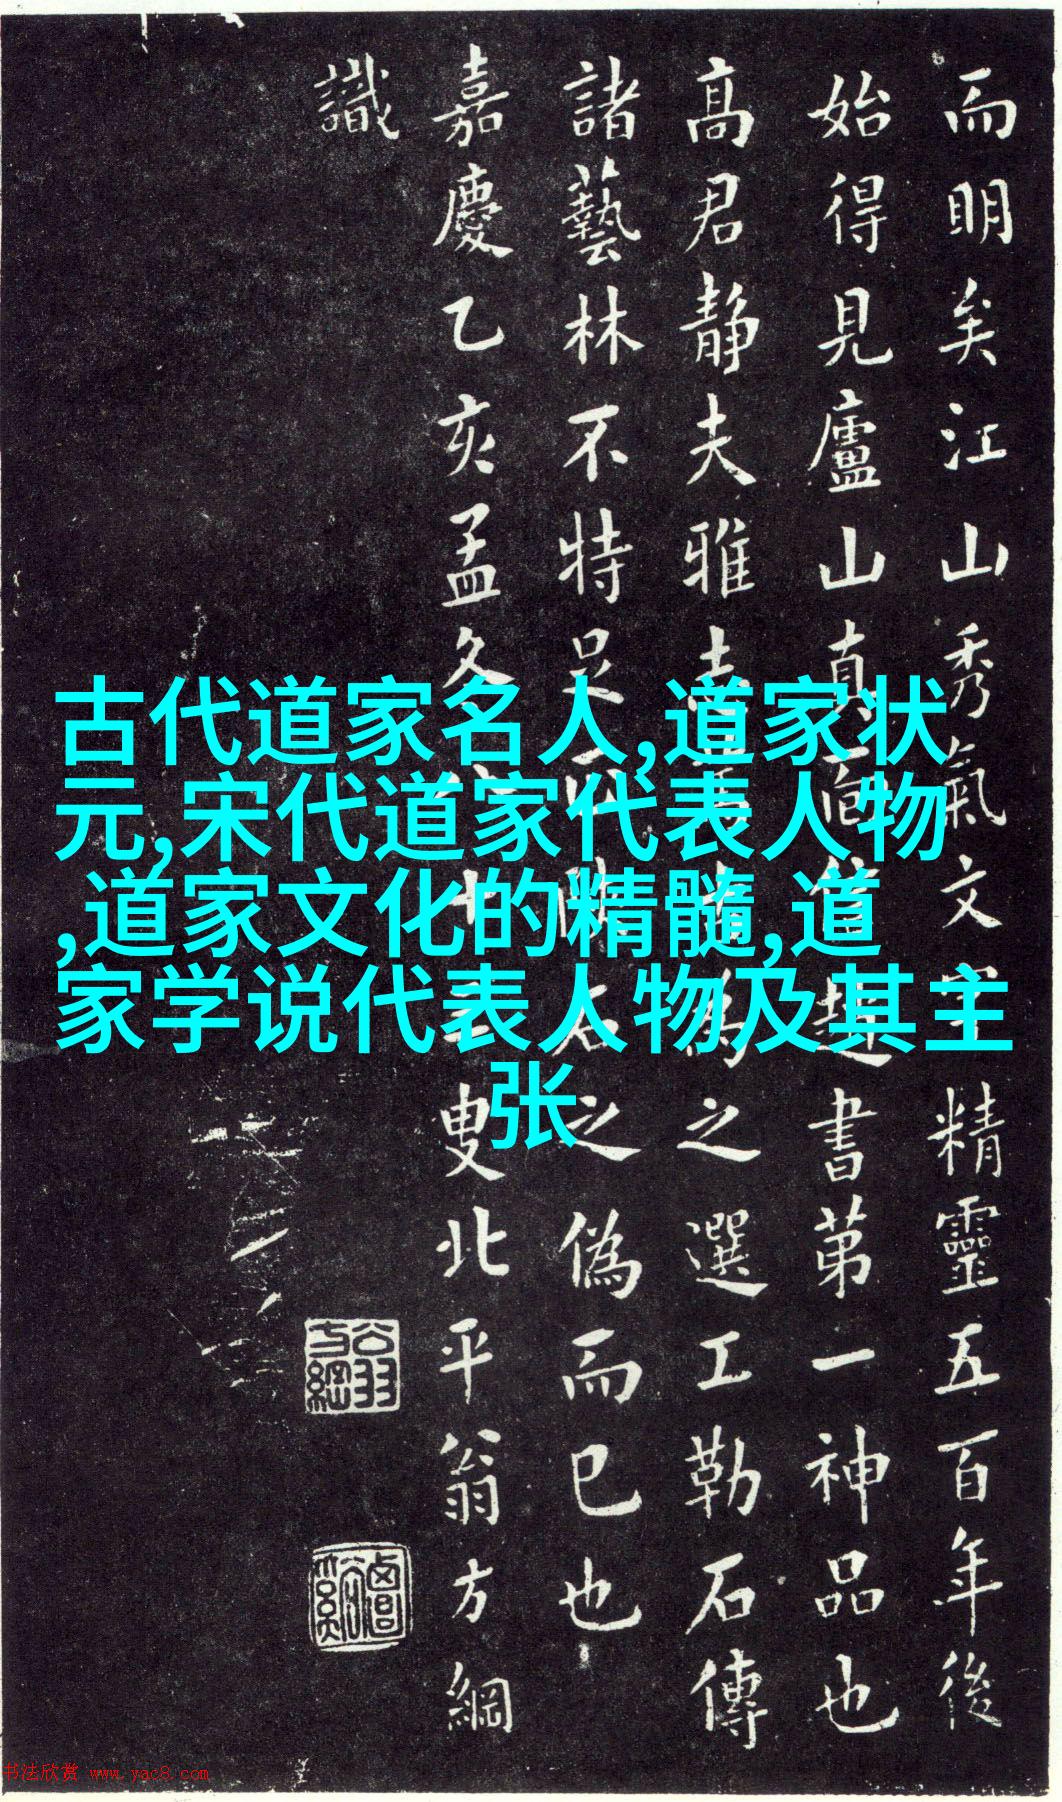 古代道家名人,道家状
元,宋代道家代表人物
,道家文化的精髓,道
家学说代表人物及其主
张
而明矣江山秀氣文字精靈五百年後
始得見廬山真面書第一神品也
高君静夫雅為之選工勒石傳
諸藝林不特足以石之偽而已也
嘉慶乙亥孟冬十三叟北平翁方綱
識
翁方綱
书法欣赏 www.yac8.com